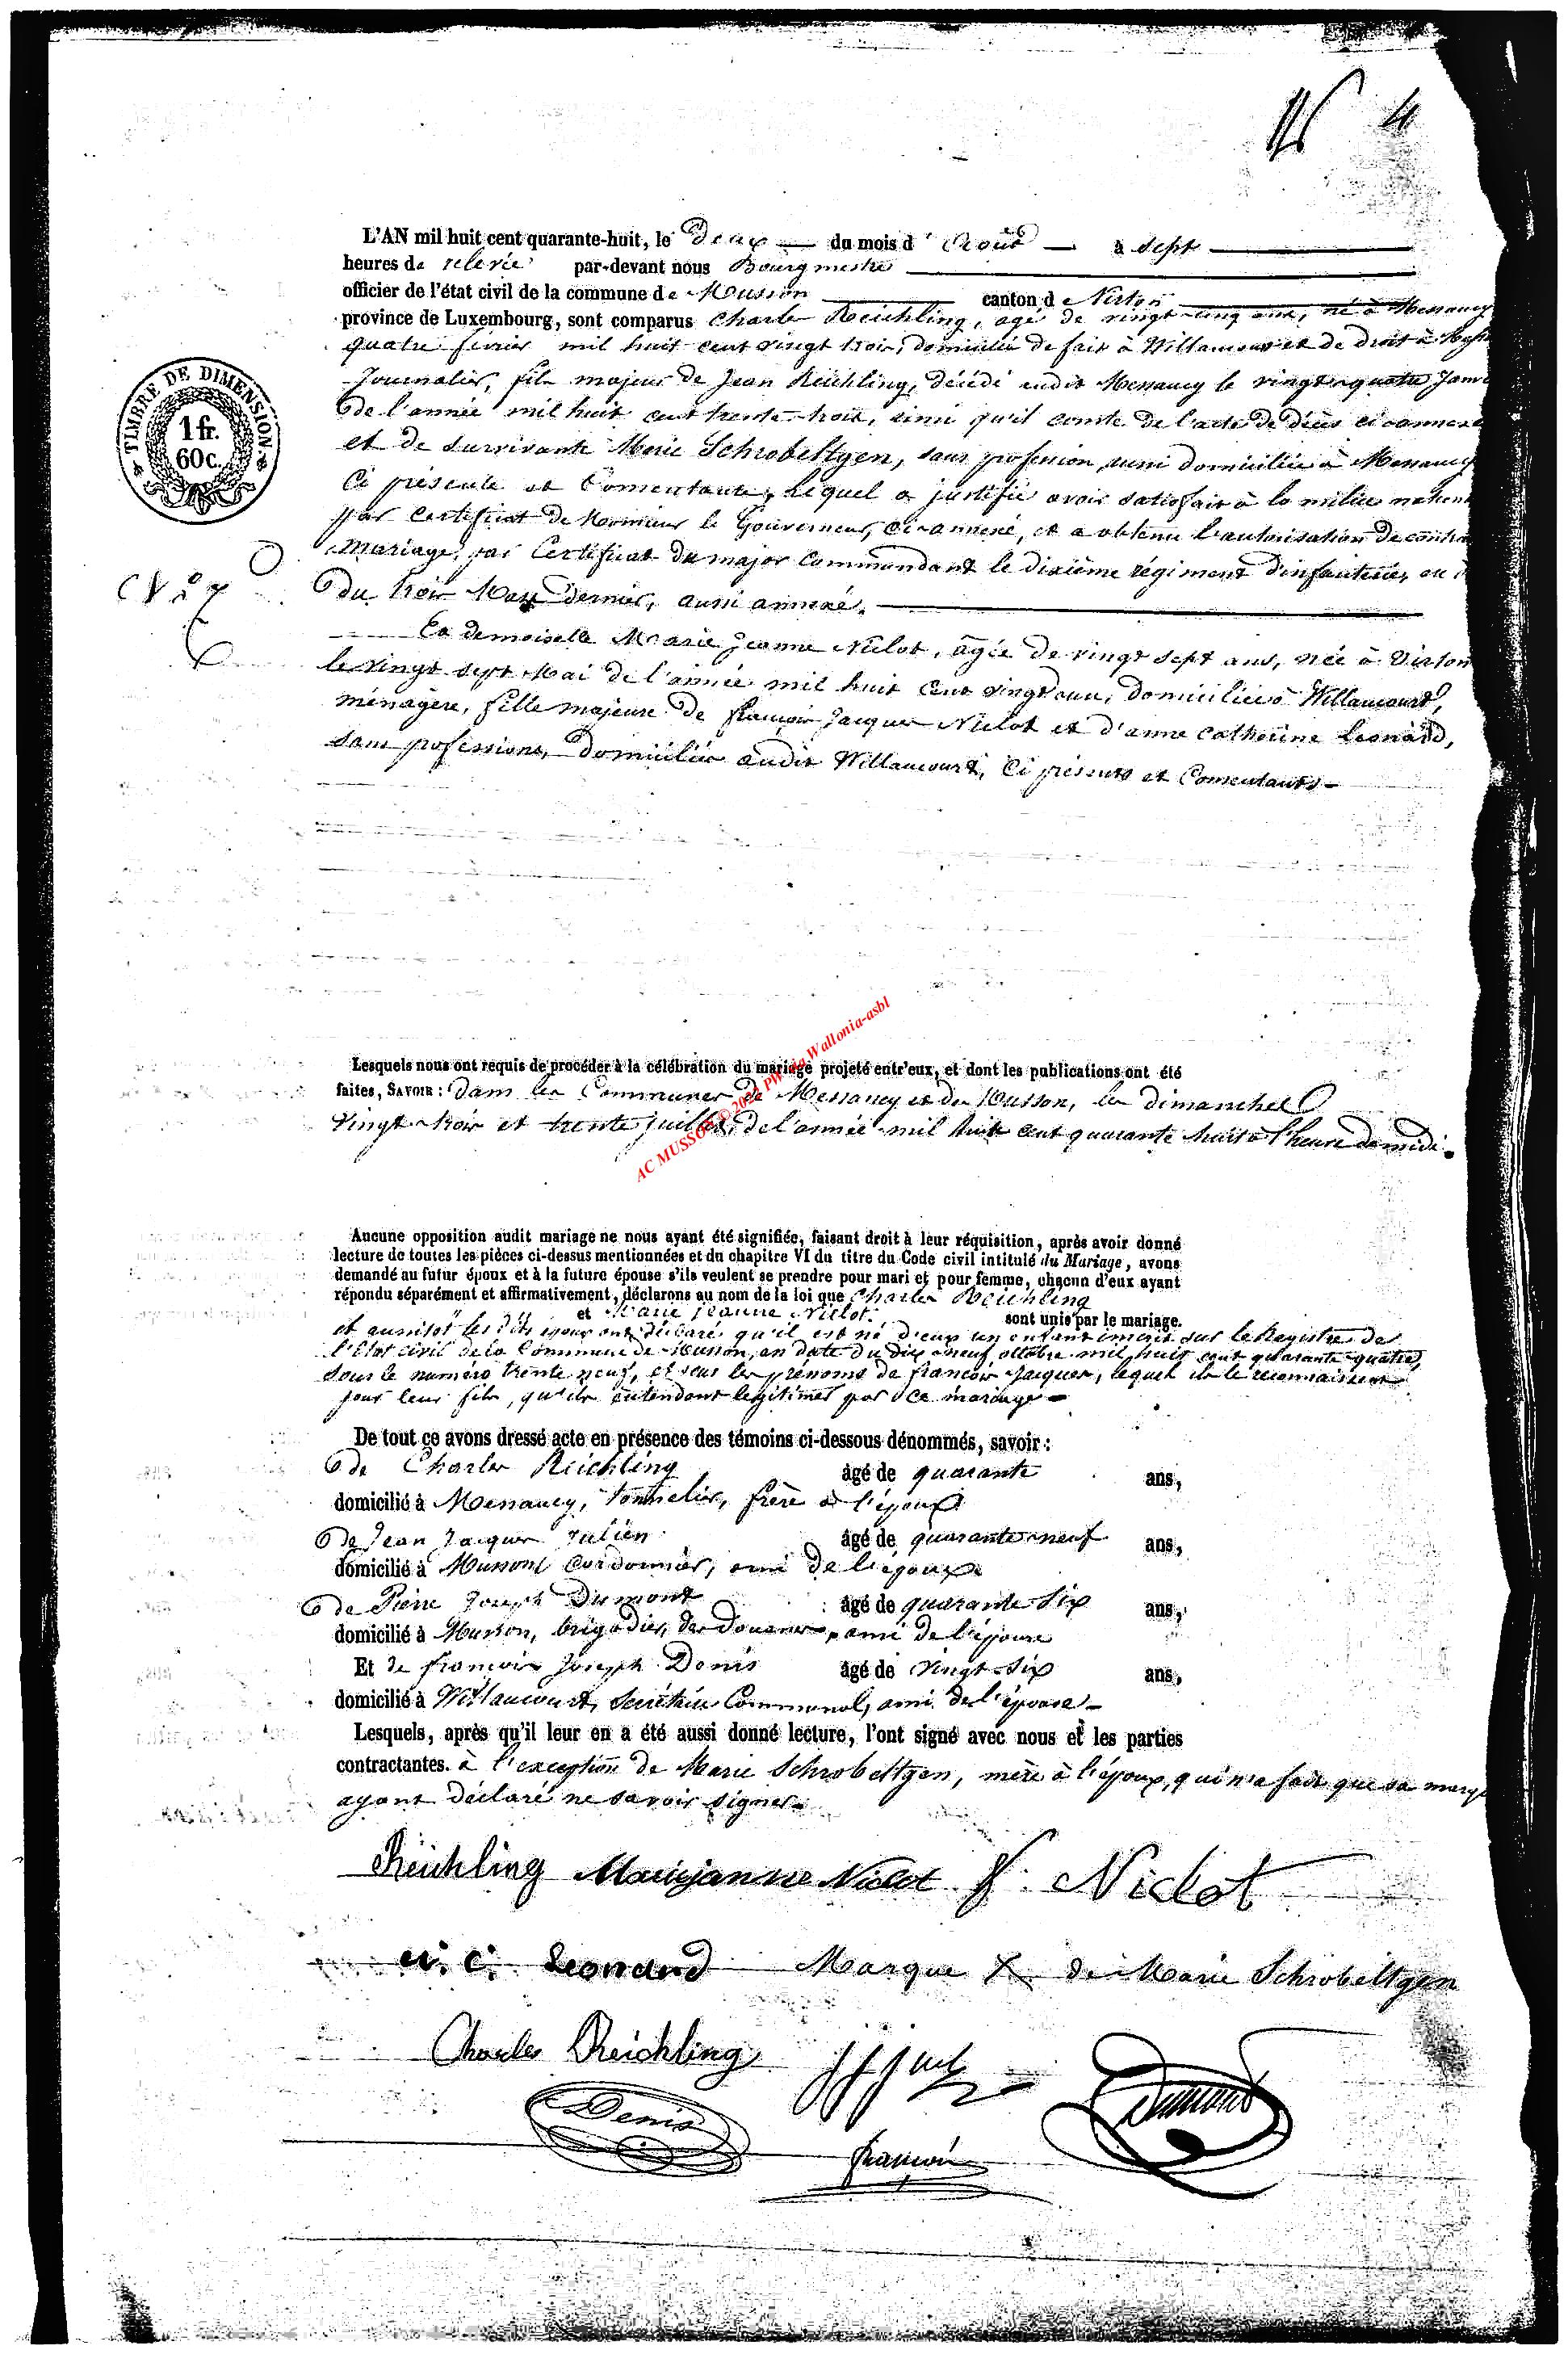 4
L'AN mil huit cent quarante-huit, le deux du mois d'Août à Sept
heures de relevée par-devant nous Bourgmestre
officier de l'état civil de la commune de Musson canton de Virton
province de Luxembourg, sont comparus Charles Reichling, agé de vingt cinq ans, né à Messancy
quatre février mil huit cent vingt trois, domicilié de fait à Willancourt et de droit à
Journalier, fils majeur de Jean Reichling, décédé audit Messancy le vingt quatre Janv
de l'année mil huit cent trente-trois, ainsi qu'il conste de l'acte de décès ci-annexé
et de survivante Marie Schrobeltgen, sans profession, aussi domiciliée à Messancy
Ci présente et Consentante, Lequel a justifié avoir satisfait à la milice nation
par certificat de Monsieur le Gouverneur, ci-annexé, et a obtenu l'autorisation de contra
mariage, par Certificat du major Commandant le dixième régiment d'infanterie, en
du trois Mars dernier, aussi annexé.
N° 7
Et demoiselle Marie Jeanne Niclot, agée de vingt sept ans, née à Virton
le vingt sept Mai de l'année mil huit cent vingt un, domiciliée à Willancourt,
ménagère, fille majeure de françois Jacques Niclot et d'anne catherine Leonard,
sans professions, domiciliés audit Willancourt, Ci présents et Consentants
TIMBRE DE DIMENSION
1 fr.
60 c.
Lesquels nous ont requis de procéder à la célébration du mariage projeté entr'eux, et dont les publications ont été
faites, SAVOIR : dans les Communes de Messancy et de Musson, les dimanches
vingt-trois et trente juillet, de l'année mil huit cent quarante huit à l'heure de midi.
AC MUSSON © 2022 PW via Wallonia-asbl
Aucune opposition audit mariage ne nous ayant été signifiée, faisant droit à leur réquisition, après avoir donné
lecture de toutes les pièces ci-dessus mentionnées et du chapitre VI du titre du Code civil intitulé du Mariage, avons
demandé au futur époux et à la future épouse s'ils veulent se prendre pour mari et pour femme, chacun d'eux ayant
répondu séparément et affirmativement, déclarons au nom de la loi que Charles Reichling
et Marie jeanne Niclot. sont unis par le mariage.
et aussitôt les dits époux ont déclaré qu'il est né d'eux un enfant inscrit sur le Registre de
l'Etat civil de la Commune de Musson, en date du dix neuf octobre mil huit cent quarante quatre,
sous le numéro trente neuf, et sous les prénoms de francois Jacques, lequel ils le reconnaissent
pour leur fils, qu'ils entendent légitimer par ce mariage
De tout ce avons dressé acte en présence des témoins ci-dessous dénommés, savoir :
de Charles Reichling âgé de quarante ans,
domicilié à Messancy, tonnelier, frère à l'époux
de Jean Jacques Julien âgé de quarante-neuf ans,
domicilié à Musson Cordonnier, ami de l'époux
de Pierre Joseph Dumont âgé de quarante-six ans,
domicilié à Musson, brigadier des Douanes, ami de l'épouse
Et de francois Joseph Denis âgé de vingt-six ans,
domicilié à Willancourt, Secrétaire Communal, ami de l'épouse
Lesquels, après qu'il leur en a été aussi donné lecture, l'ont signé avec nous et les parties
contractantes. à l'exception de Marie Schrobeltgen, mère à l'époux, qui n'a fait que sa marq
ayant déclaré ne savoir signer.
Reichling Mariejanne Niclot f. Niclot
a. c. Leonard Marque X de Marie Schrobeltgen
Charles Reichling
Denis françois Dumont